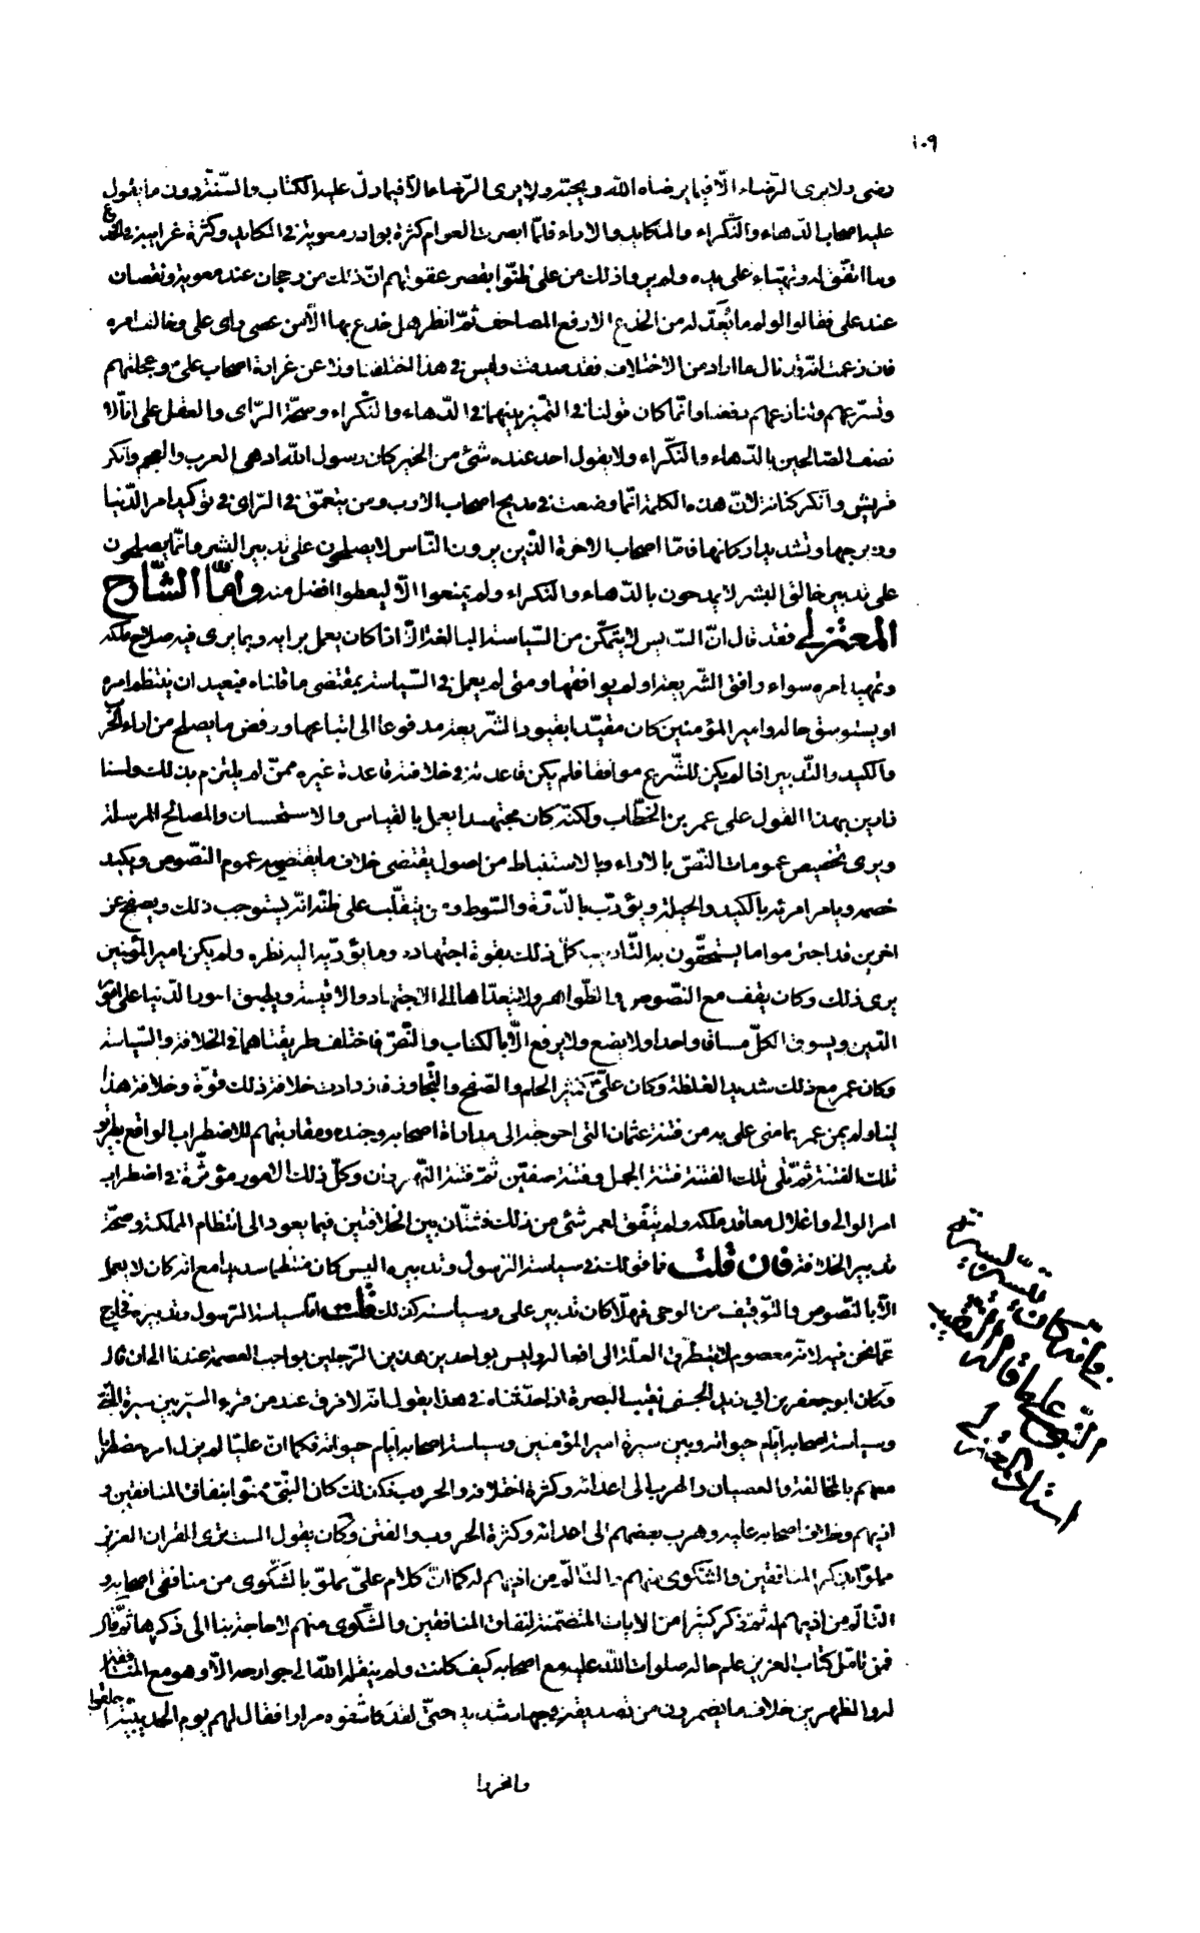 ١٠٩
رضى ولا يرى الرّضاء الّا فيما يرضاه الله ويحبّه ولا يرى الرّضا ما الّا فيما دلّ عليه الكتاب والسّنّة دون ما يقول
عليه اصحاب الدّهاء والنّكراء والمكايد والاراء فلمّا ابصرت العوام كثرة بوادر معوية فى المكايد وكثرة غرايبه فى الخدع
وما اتّفق له وتهيّاء على يده ولم يروا ذلك من على ظنّوا بقصر عقولهم انّ ذلك من رجحان عند معوية ونقصان
عند على فقالوا لو لم ما يُعَدّ له من الخدع الا رفع المصاحف ثمّ انظر هل خدع بها الّا من عصى راى على وخالف امره
فان زعمت انّه قد نال ما اراد من الاختلاف فقد صدقت وليس فى هذا اختلفنا ولا عن غرارة اصحاب علىّ وعجلتهم
وتسرّعهم وتنازعهم دفعنا وانّما كان قولنا فى التّميز بينهما فى الدّهاء والنّكراء وصحّة الرّاى والعقل على انّا لا
نصف الصّالحين بالدّهاء والنّكراء ولا يقول احد عنده شئ من الخير كان رسول الله ادهى العرب والعجم وانكر
قريش وانكر كنانة لانّ هذه الكلمة انّما وضعت فى مديح اصحاب الارب ومن يتعمّق فى الرّاى فى توكيد امر الدّنيا
وزبرجها وتشديد اركانها فامّا اصحاب الاخرة الّذين يرون النّاس لا يصلحون على تدبير البشر وانّما يصلحون
على تدبير خالق البشر لا يمدحون بالدّهاء والنكراء ولم يمنعوا الّا ليعطوا افضل منه وامّا الشّارح
المعتزلى فقد قال انّ السّايس لا يتمكّن من السّياسة البالغة الّا اذا كان يعمل برايه وبما يرى فيه صلاح ملكه
وتمهيد امره سواء وافق الشّريعة او لم يوافقها ومتى لم يعمل فى السّياسة بمقتضى ما قلناه فبعيد ان ينتظم امره
او يستوسق حاله وامير المؤمنين كان مقيّدا بقيود الشّريعة مدفوعا الى اتباعها ورفض ما يصلح من اراء الحرب
والكيد والتّدبير اذا لم يكن للشّرع موافقا فلم يكن قاعدته فى خلافته قاعدة غيره ممّن لم يلتزم بذلك ولسنا
زارين بهذا القول على عمر بن الخطّاب ولكنّه كان مجتهدا يعمل بالقياس والاستحسان والمصالح المرسلة
ويرى تخصيص عمومات النّصّ بالاراء وبالاستنباط من اصول يقتضى خلاف ما يقتضيه عموم النّصوص ويكيد
خصمه ويامر امرئه بالكيد والحيلة ويؤدّب بالدّرّة والسّوط من يتغلّب على ظنّه انّه يستوجب ذلك ويصفح عن
اخرين قد اجترموا ما يستحقّون به التّاديب كلّ ذلك بقوة اجتهاده وما يؤدّيه اليه نظره ولم يكن امير المؤمنين
يرى ذلك وكان يقف مع النّصوص والظّواهر ولا يتعدّاها الى الاجتهاد والاقيسة ويطبق امور الدّنيا على امور
الدّين ويسوق الكلّ مساقا واحدا ولا يضع ولا يرفع الّا بالكتاب والنّصّ فاختلف طريقتاهما فى الخلافة والسّياسة
وكان عمر مع ذلك شديد الغلظة وكان علىّ كثير الحلم والصّفح والتّجاوز فازدادت خلافة ذلك قوّة وخلافة هذا
لينا ولم يمن عمر بما منى على به من فتنة عثمان التى احوجته الى مداراة اصحابه وجنده ومقاربتهم للاضطراب الواقع بطريق
تلك الفتنة ثمّ تلى تلك الفتنة فتنة الجمل وفتنة صفّين ثمّ فتنة النّهروان وكلّ ذلك الامور مؤثّرة فى اضطراب
امر الوالى وانحلال معاقد ملكه ولم يتّفق لعمر شئ من ذلك فشتّان بين الخلافتين فيما يعود الى انتظام المملكة وصحّة
تدبير الخلافة فان قلت فما قولك فى سياسة الرّسول وتدبيره اليس كان منتظما سديدا مع انه كان لا يعمل
الّا بالنّصوص والتّوقيف من الوحى فهلّا كان تدبير على وسياسته كذلك قلت امّا سياسة الرّسول وتدبيره فخارج
عمّا نحن فيه لانّه معصوم لا يتطرق الغفلة الى افعاله وليس بواحد بن هذين الرّجلين بواجب العصمة عندنا الى ان قال
وكان ابو جعفر بن ابى زيد الحسنى نقيب البصرة اذا حدّثناه فى هذا يقول انّه لا فرق عند من قرء السّيرتين سيرة النّبىّ
وسياسة اصحابه ايّام حيوته وبين سيرة امير المؤمنين وسياسة اصحابه ايّام حيوته فكما انّ عليّا لم يزل امره مضطربا
معهم بالمخالفة والعصيان والهرب الى اعدائه وكثرة اختلافه والحروب فكذلك كان النّبىّ ممنوّا بنفاق المنافقين و
اذيهم وخلاف اصحابه عليه وهرب بعضهم الى اعدائه وكثرة الحروب والفتن وكان يقول الست ترى القران العزيز
مملوّا بذكر المنافقين والشكوى منهم والتّالّم من اذيهم له كما انّ كلام علىّ مملوّ بالشّكوى من منافقى اصحابه و
التّالّم من اذيهم له ثمّ ذكر كثيرا من الايات المتضمّنة لنفاق المنافقين والشّكوى منهم لا حاجة بنا الى ذكرها ثمّ قال
فمن تامّل كتاب العزيز علم حاله صلوات الله عليه مع اصحابه كيف كانت ولم ينقله الله الى جواره الّا وهو مع المنافقين
له والمظهرين خلاف ما يضمرون من تصديقه فى جهاد شديد حتّى لقد كاشفوه مرارا فقال لهم يوم الحديبيّة احلقوا
وانحروا
وانّه كان
السّيرتين سيرة
النّبىّ وعلى ما قاله النّقيب
استاد المعتزلى